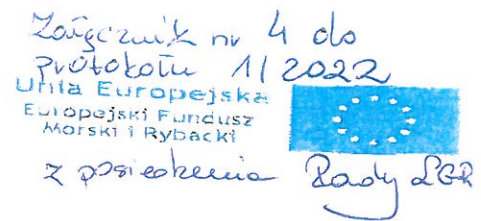 Załącznik nr 4 do
protokołu 1/2022
Unia Europejska
Europejski Fundusz
Morski i Rybacki
z posiedzenia Rady LGR